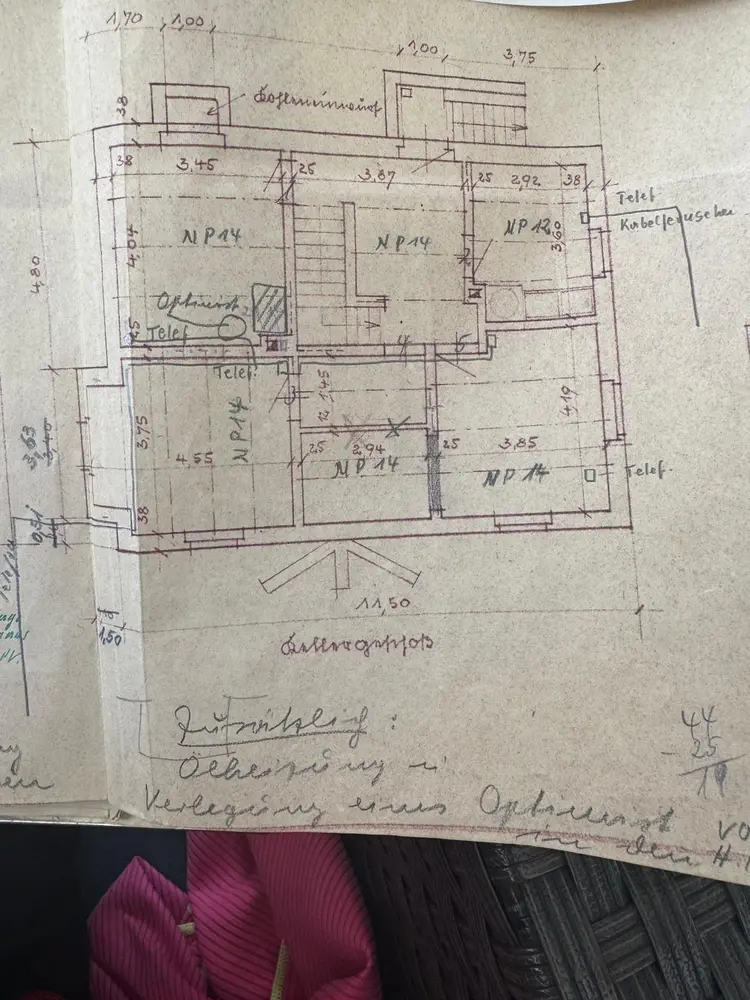 1,70 1,00
1,00 3,75
38
Kohleneinwurf
38 3,45 25 3,87 25 2,92 38
Telef
Kabelfernsehen
NP14
NP14
NP12
3,60
4,80
4,04
25
Telef
Telef.
1,45
12
4,19
3,63
3,40
3,75
4,55
NP14
25 2,94 25 3,85
NP14
NP14
Telef.
38
0,51
11,50
1,50
Kellergeschoß
Zusätzlich:
44
Ölheizung u
- 25
19
Verlegung eines
in den H.